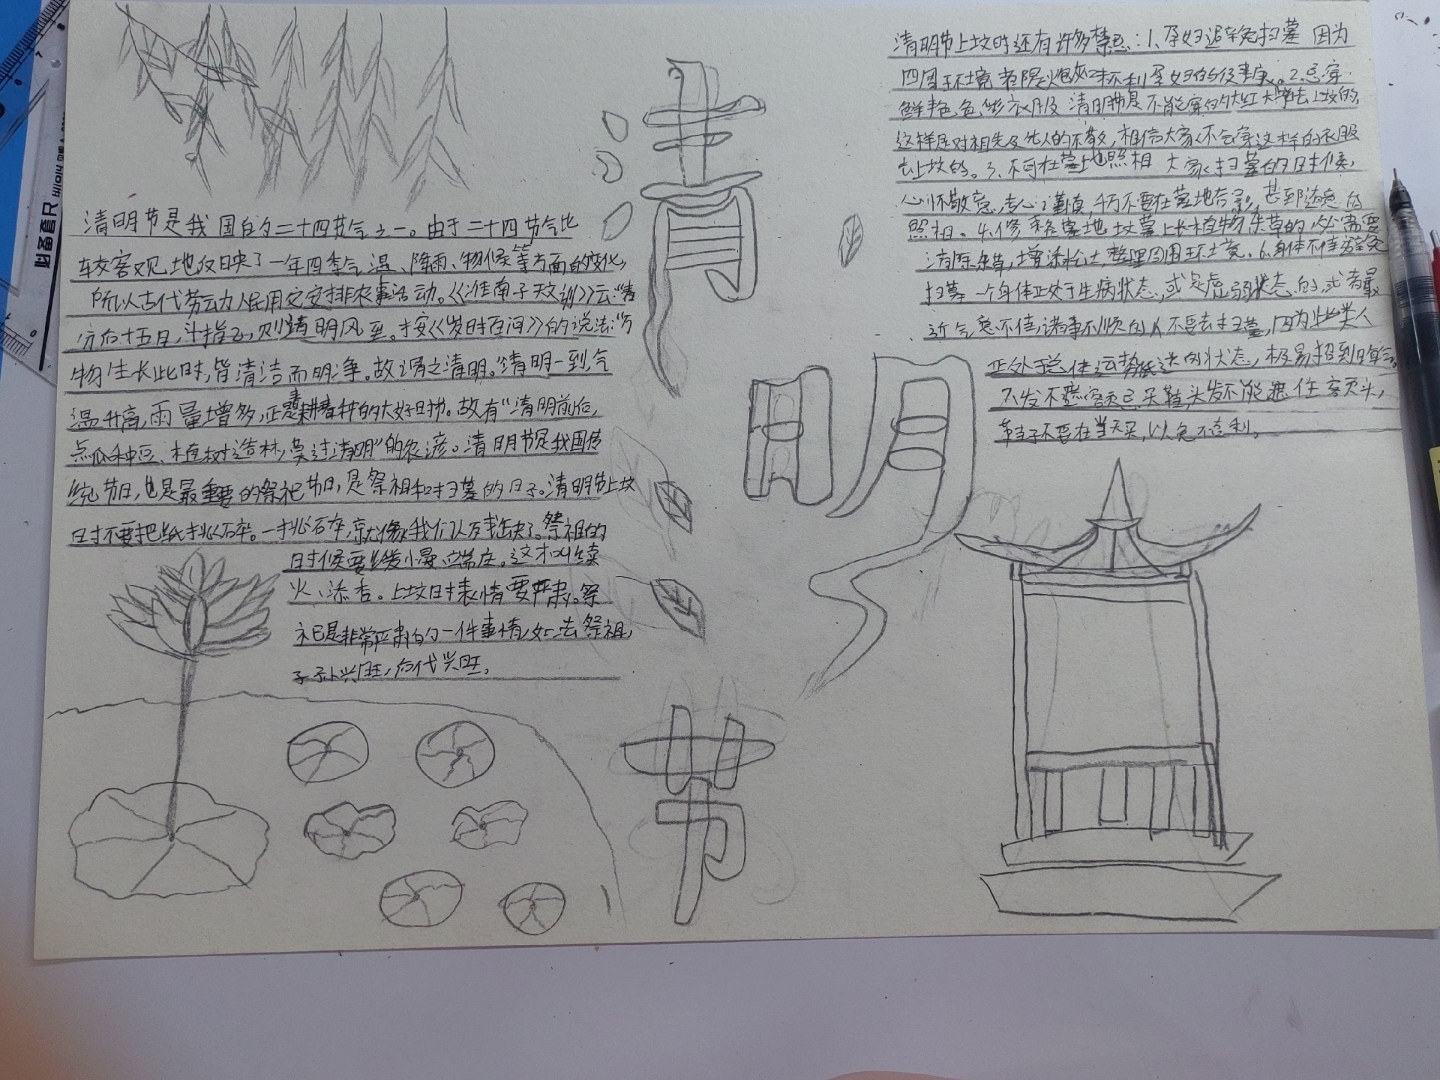 清明节是我国的二十四节气之一。由于二十四节气比
较客观地反映了一年四季气温、降雨、物候等方面的变化,
所以古代劳动人民用它安排农事活动。《淮南子天文训》云:"春
分后十五日,斗指乙,则清明风至。按《岁时百问》的说法:"万
物生长此时,皆清洁而明净。故谓之清明。"清明一到气
温升高,雨量增多,正是春耕春种的大好时节。故有"清明前后,
点瓜种豆、植树造林,莫过清明"的农谚。清明节是我国传
统节日,也是最重要的祭祀节日,是祭祖和扫墓的日子。清明节上坟
时不要把纸挑碎。一挑碎,就像我们人民钱缺了。祭祖的
时候要 小 端庄。这才叫续
火、添香。上坟时表情要严肃。祭
祀是非常严肃的一件事情,如 去祭祖,
子孙兴旺,后代兴旺。
清
明
节
清明节上坟时还有许多禁忌:1、孕妇避免扫墓 因为
四周环境 孕妇的 2.忌穿
鲜艳色彩衣服 清明节是不能穿的大红大紫去上坟的,
这样是对祖先及先人的不敬,相信大家不会穿这样的衣服
去上坟的。3、不可在墓地照相 大家扫墓的时候,
心怀敬意,忠心谨慎,千万不要在墓地合影,甚至随意的
照相。4.修整墓地 坟墓上长植物杂草的 必需要
清除杂草,增添松土 整理四周环境、6.身体不佳避免
扫墓 一个身体正处于生病状态,或是虚弱状态的,或者最
近气色不佳,诸事不顺的人不要去扫墓,因为此类人
正处于 运势低迷的状态,极易招到
头发不 买鞋头发不能遮住额头,
鞋子不要在当天买,以免不吉利。